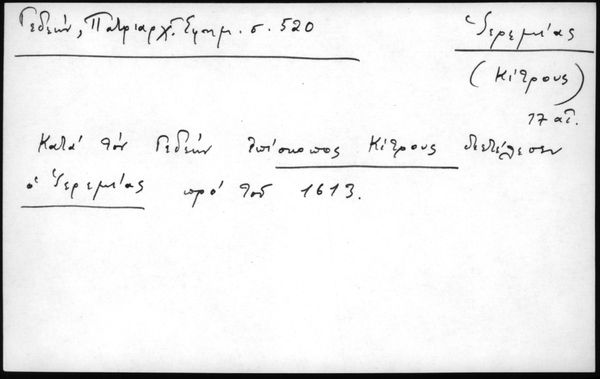 Γεδεών, Πατριαρχ. Εφημ. σ. 520
Ἱερεμίας
(Κίτρους)
17 αἰ.
Κατά τόν Γεδεών ἐπίσκοπος Κίτρους διετέλεσεν
ὁ Ἱερεμίας πρό τοῦ 1613.